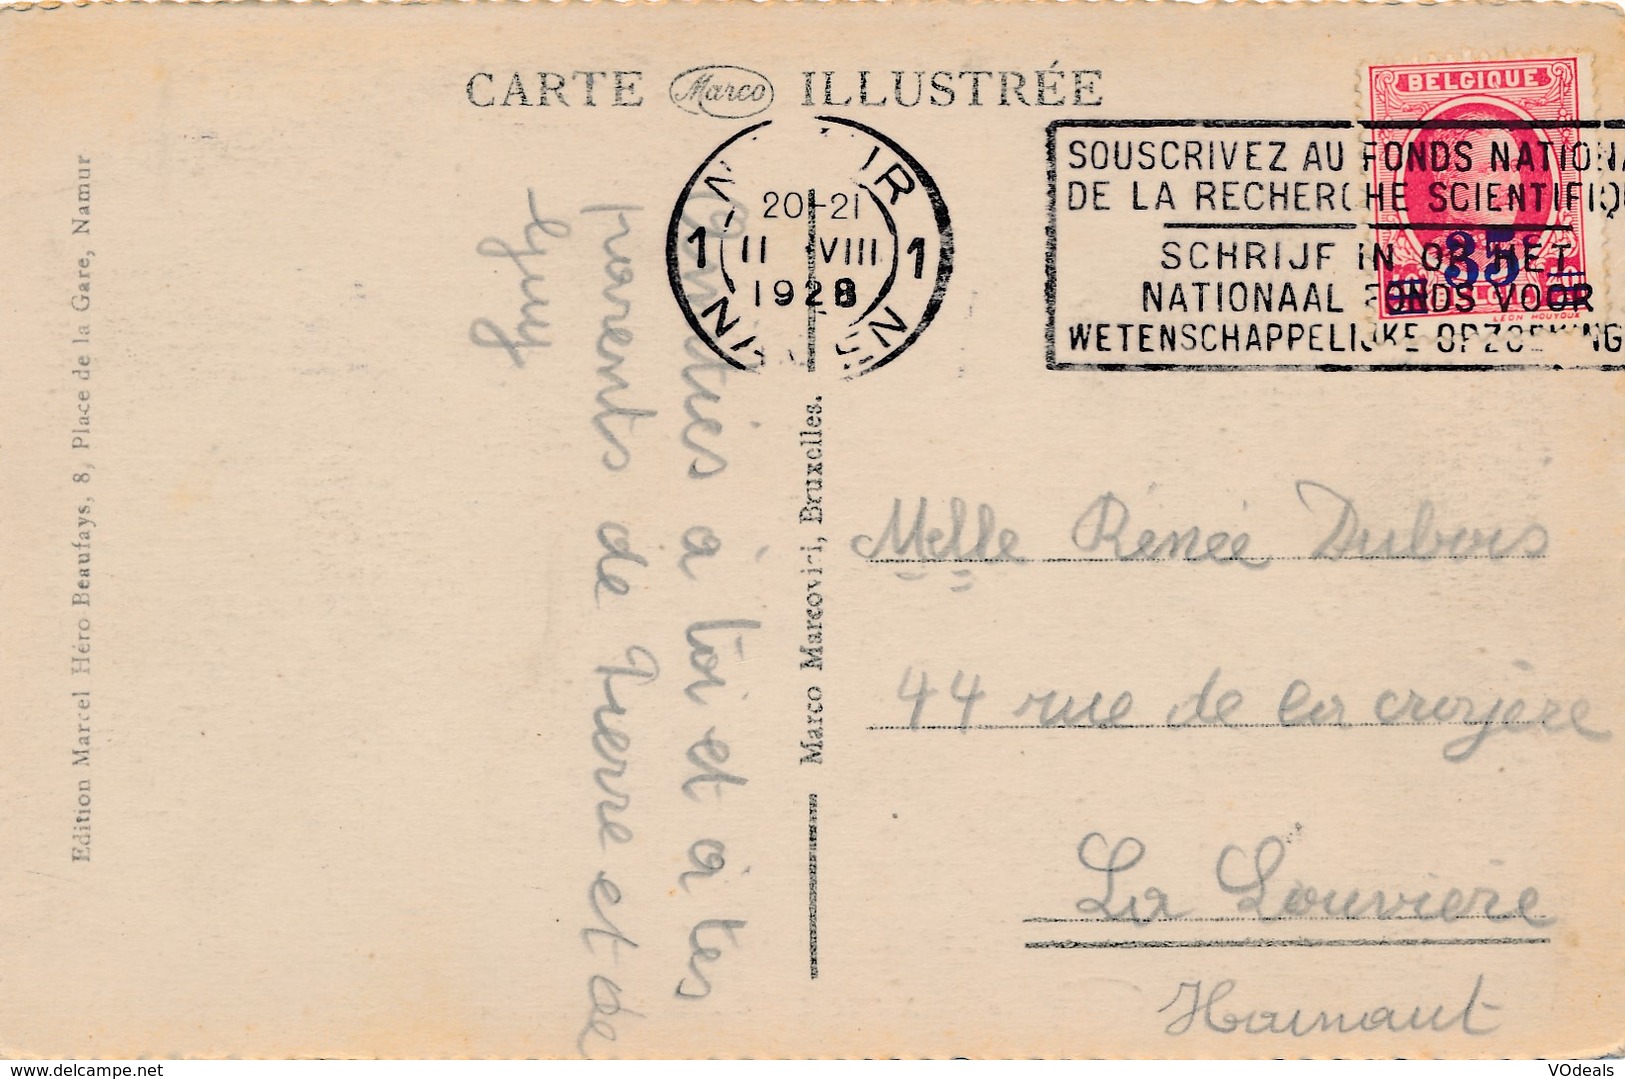 CARTE Marco ILLUSTRÉE
BELGIQUE
35
BELGIQUE
LÉON HOUYOUX
SOUSCRIVEZ AU FONDS NATIONA
DE LA RECHERCHE SCIENTIFIQU
SCHRIJF IN OP HET
NATIONAAL FONDS VOOR
WETENSCHAPPELIJKE OPZOEKING
NAMUR
20-21
1 11 VIII 1
1928
NAMEN
Edition Marcel Héro-Beaufays, 8, Place de la Gare, Namur
Amitiés à toi et à tes
parents de Pierre et de
Guy
Marco Marcovici, Bruxelles.
Melle Renée Dubois
44 rue de la croyère
La Louvière
Hainaut
www.delcampe.net
VOdeals